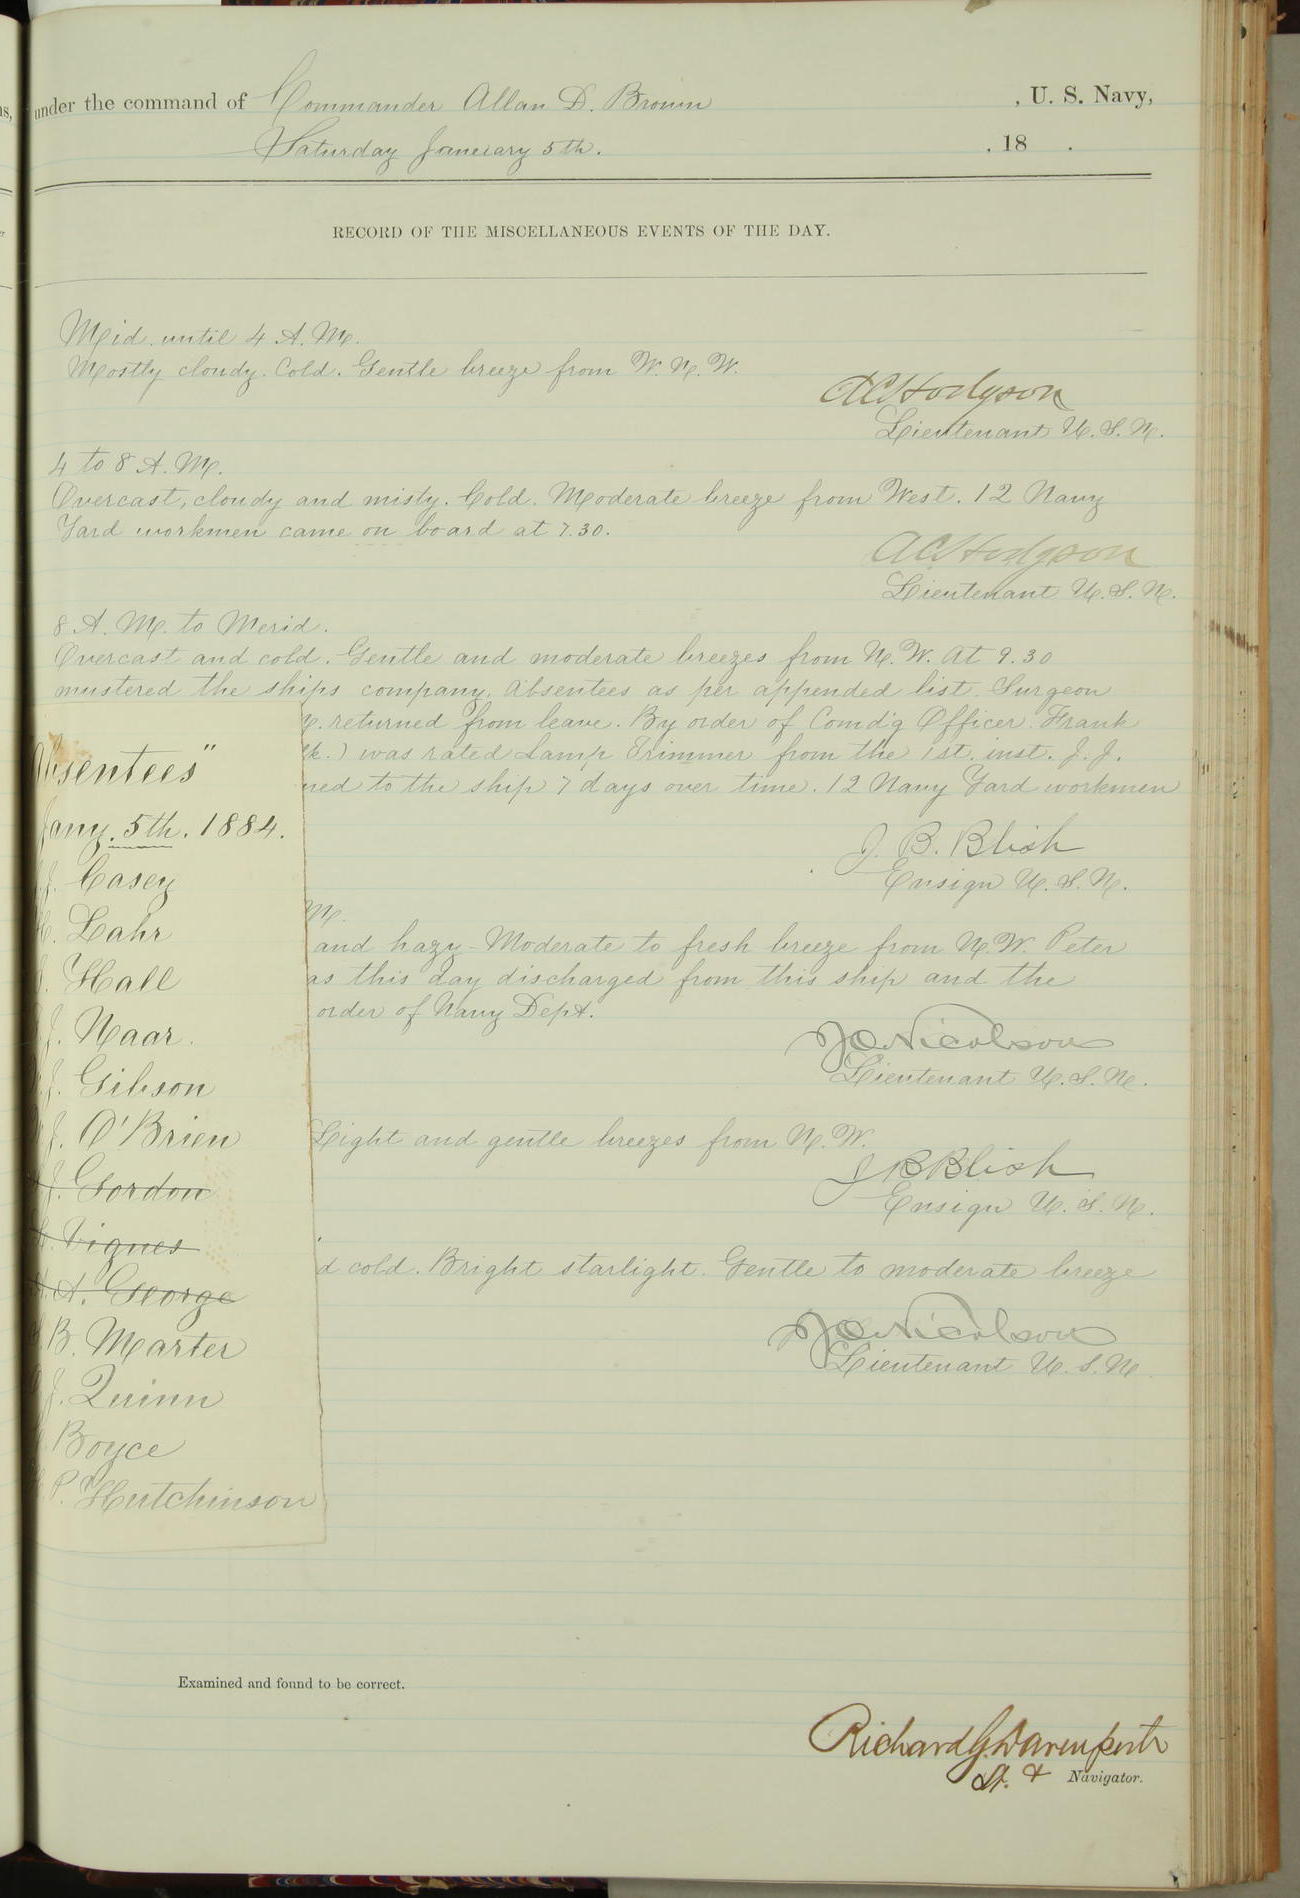 under the command of Commander Allan D. Brown , U. S. Navy,
Saturday January 5th. , 18 .
RECORD OF THE MISCELLANEOUS EVENTS OF THE DAY.
Mid. until 4 A. M.
Mostly cloudy. Cold. Gentle breeze from W. N. W.
A C Hodgson
Lieutenant U. S. N.
4 to 8 A. M.
Overcast, cloudy and misty. Cold. Moderate breeze from West. 12 Navy
Yard workmen came on board at 7.30.
A C Hodgson
Lieutenant U. S. N.
8 A. M. to Merid.
Overcast and cold. Gentle and moderate breezes from N. W. At 9.30
mustered the ships company, absentees as per appended list. Surgeon
returned from leave. By order of Comd'g Officer. Frank
was rated Lamp Trimmer from the 1st. inst. J. J.
ned to the ship 7 days over time. 12 Navy Yard workmen
J. B. Blish
Ensign U. S. N.
M.
and hazy - Moderate to fresh breeze from N. W. Peter
as this day discharged from this ship and the
order of Navy Dept.
J O Nicolson
Lieutenant U. S. N.
Light and gentle breezes from N. W.
J B Blish
Ensign U. S. N.
d cold. Bright starlight. Gentle to moderate breeze
J O Nicolson
Lieutenant U. S. N
Absentees"
Jany. 5th. 1884.
J. Casey
Lahr
Hall
J. Naar.
J. Gibson
J. O'Brien
J. Gordon
Vignes
A. George
B. Marter
J. Quinn
Boyce
P. Hutchinson
Examined and found to be correct.
Richard G. Davenport
Lt. & Navigator.